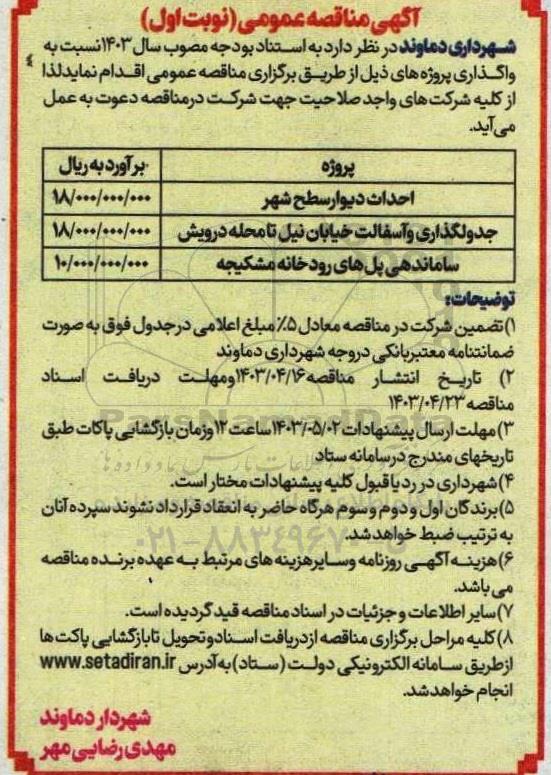 آگهی مناقصه عمومی (نوبت اول)
شهرداری دماوند در نظر دارد به استناد بودجه مصوب سال ۱۴۰۳ نسبت به
واگذاری پروژه های ذیل از طریق برگزاری مناقصه عمومی اقدام نماید لذا
از کلیه شرکت های واجد صلاحیت جهت شرکت در مناقصه دعوت به عمل
می آید.
پروژه برآورد به ریال
احداث دیوار سطح شهر ۱۸/۰۰۰/۰۰۰/۰۰۰
جدولگذاری و آسفالت خیابان نیل تا محله درویش ۱۸/۰۰۰/۰۰۰/۰۰۰
ساماندهی پل های رودخانه مشکیجه ۱۰/۰۰۰/۰۰۰/۰۰۰
توضیحات:
۱) تضمین شرکت در مناقصه معادل ۵٪ مبلغ اعلامی در جدول فوق به صورت
ضمانتنامه معتبر بانکی در وجه شهرداری دماوند
۲) تاریخ انتشار مناقصه ۱۴۰۳/۰۴/۱۶ و مهلت دریافت اسناد
مناقصه ۱۴۰۳/۰۴/۲۳
۳) مهلت ارسال پیشنهادات ۱۴۰۳/۰۵/۰۲ ساعت ۱۲ و زمان بازگشایی پاکات طبق
تاریخهای مندرج در سامانه ستاد
۴) شهرداری در رد یا قبول کلیه پیشنهادات مختار است.
۵) برندگان اول و دوم و سوم هرگاه حاضر به انعقاد قرارداد نشوند سپرده آنان
به ترتیب ضبط خواهد شد.
۶) هزینه آگهی روزنامه و سایر هزینه های مرتبط به عهده برنده مناقصه
می باشد.
۷) سایر اطلاعات و جزئیات در اسناد مناقصه قید گردیده است.
۸) کلیه مراحل برگزاری مناقصه از دریافت اسناد و تحویل تا بازگشایی پاکت ها
از طریق سامانه الکترونیکی دولت (ستاد) به آدرس www.setadiran.ir
انجام خواهد شد.
شهردار دماوند
مهدی رضایی مهر
ParsNamadData
۰۲۱-۸۸۳۴۹۶۷۰